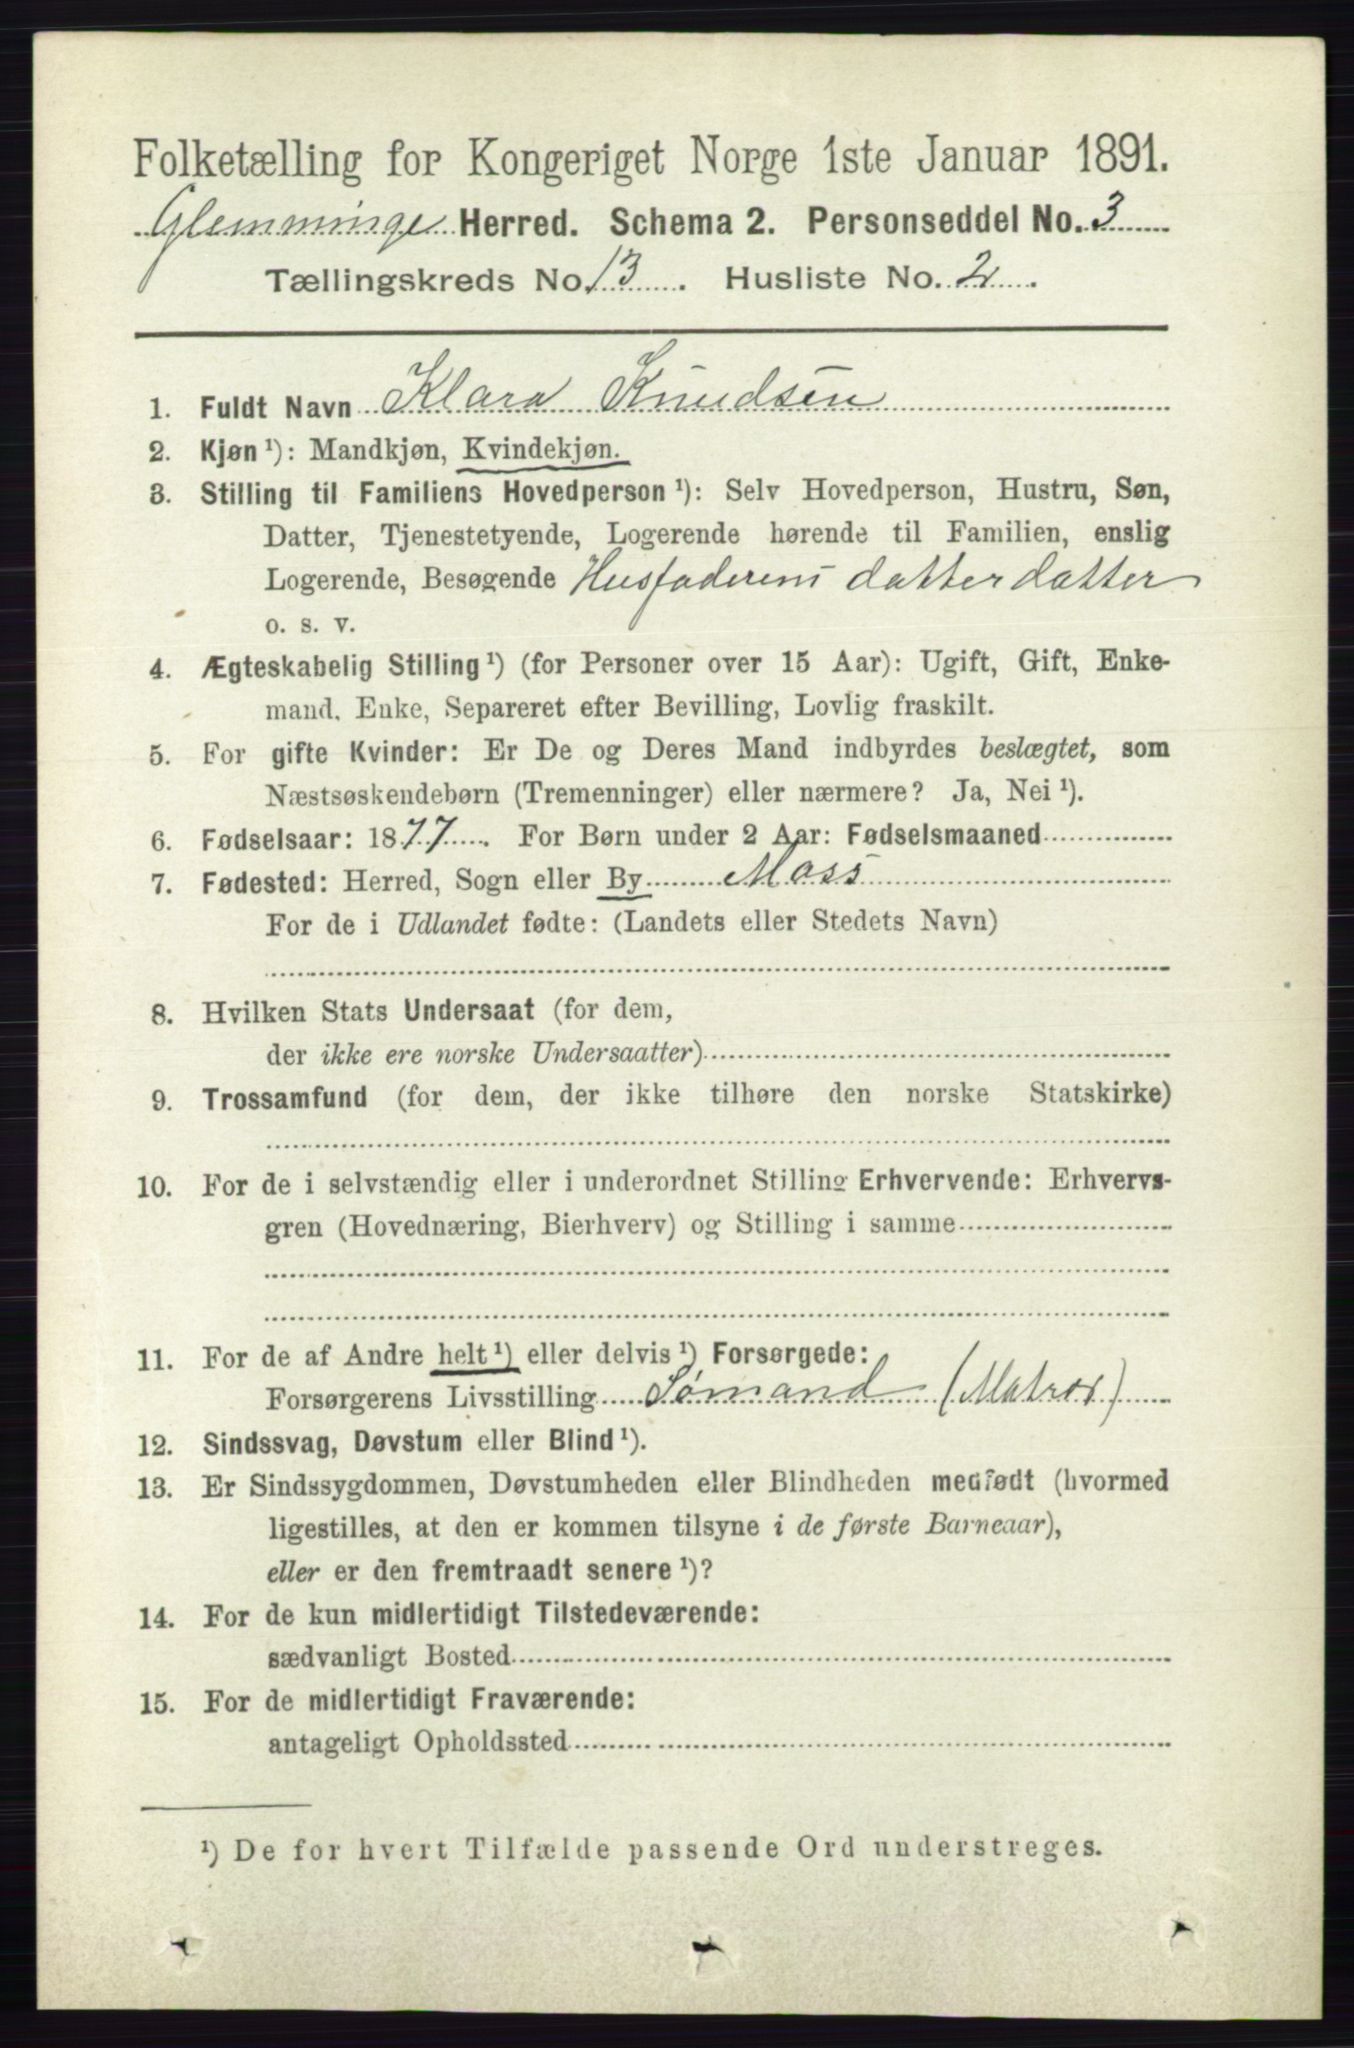 Folketælling for Kongeriget Norge 1ste Januar 1891.
Glemminge Herred. Schema 2. Personseddel No. 3
Tællingskreds No. 13. Husliste No. 2.
1. Fuldt Navn Klara Knudsen
2. Kjøn ¹): Mandkjøn, Kvindekjøn.
3. Stilling til Familiens Hovedperson ¹): Selv Hovedperson, Hustru, Søn,
Datter, Tjenestetyende, Logerende hørende til Familien, enslig
Logerende, Besøgende Husfaderens datterdatter
o. s. v.
4. Ægteskabelig Stilling ¹) (for Personer over 15 Aar): Ugift, Gift, Enke-
mand, Enke, Separeret efter Bevilling, Lovlig fraskilt.
5. For gifte Kvinder: Er De og Deres Mand indbyrdes beslægtet, som
Næstsøskendebørn (Tremenninger) eller nærmere? Ja, Nei ¹).
6. Fødselsaar: 1877. For Børn under 2 Aar: Fødselsmaaned
7. Fødested: Herred, Sogn eller By Moss
For de i Udlandet fødte: (Landets eller Stedets Navn)
8. Hvilken Stats Undersaat (for dem,
der ikke ere norske Undersaatter)
9. Trossamfund (for dem, der ikke tilhøre den norske Statskirke)
10. For de i selvstændig eller i underordnet Stilling Erhvervende: Erhvervs-
gren (Hovednæring, Bierhverv) og Stilling i samme
11. For de af Andre helt ¹) eller delvis ¹) Forsørgede:
Forsørgerens Livsstilling Sømand (Matros)
12. Sindssvag, Døvstum eller Blind ¹).
13. Er Sindssygdommen, Døvstumheden eller Blindheden medfødt (hvormed
ligestilles, at den er kommen tilsyne i de første Barneaar),
eller er den fremtraadt senere ¹)?
14. For de kun midlertidigt Tilstedeværende:
sædvanligt Bosted
15. For de midlertidigt Fraværende:
antageligt Opholdssted
¹) De for hvert Tilfælde passende Ord understreges.